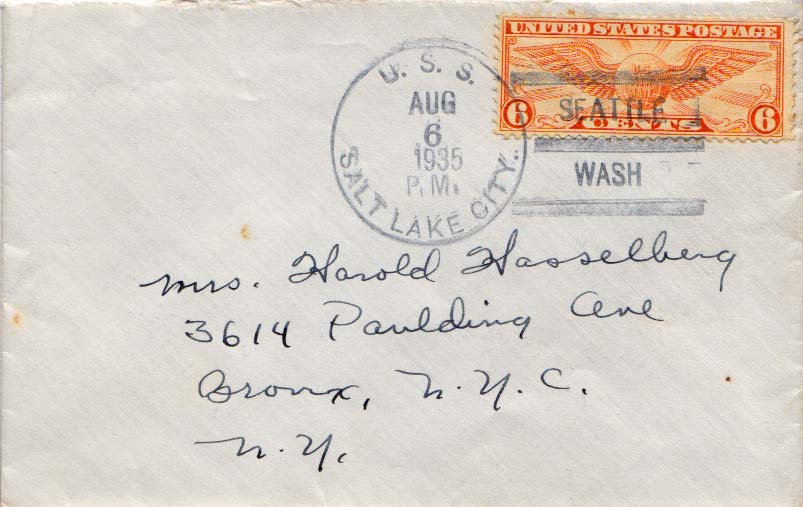 UNITED STATES POSTAGE
6 CENTS 6
U. S. S.
AUG
6
1935
P.M.
SALT LAKE CITY
SEATTLE
WASH
Mrs. Harold Hasselberg
3614 Paulding Ave
Bronx, N.Y.C.
N.Y.